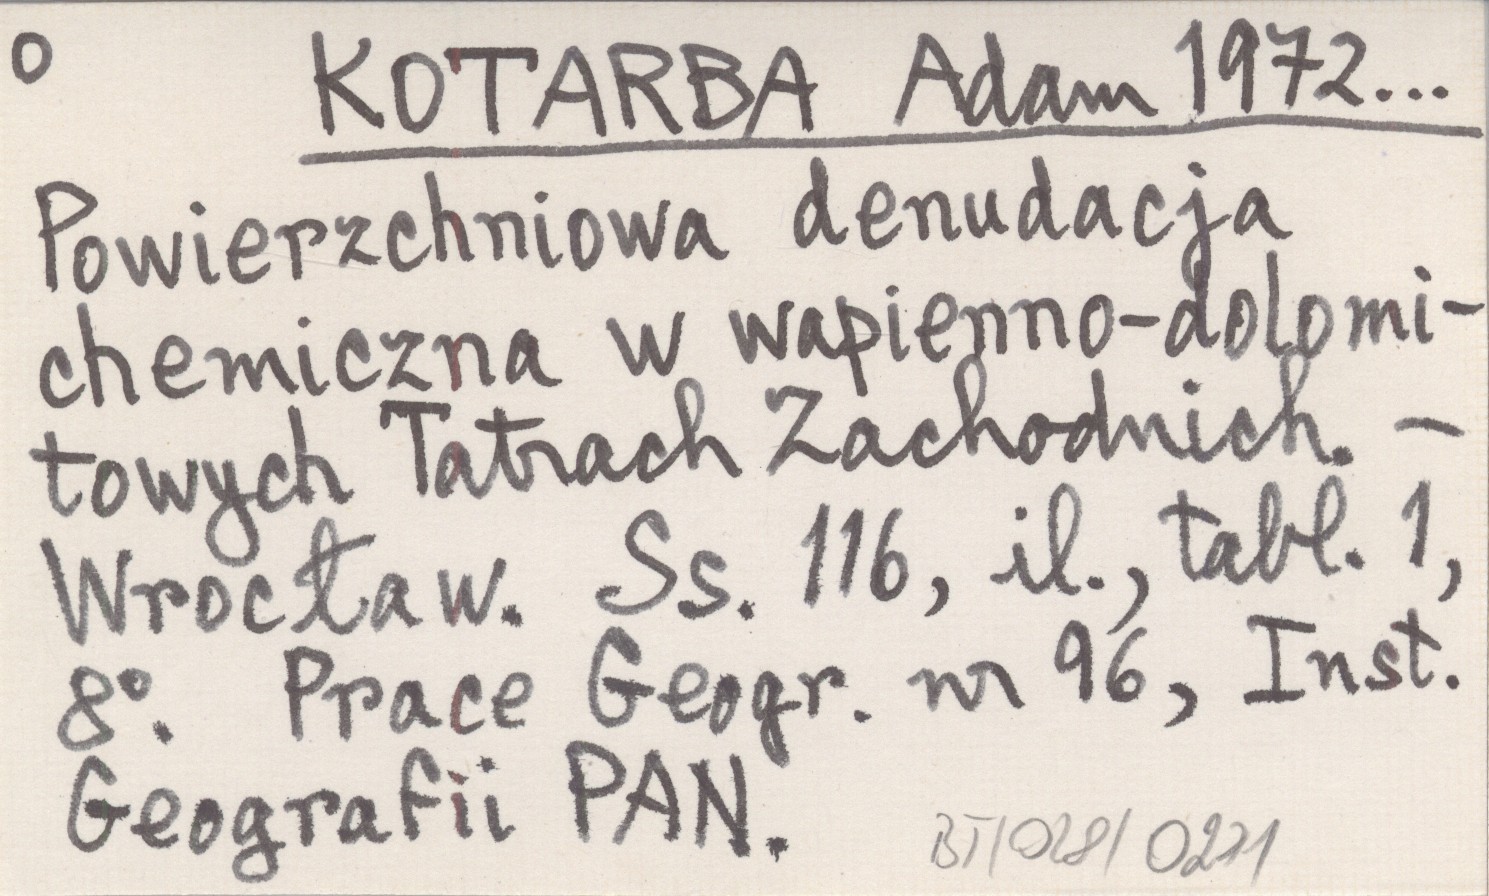 o KOTARBA Adam 1972...
Powierzchniowa denudacja
chemiczna w wapienno-dolomi-
towych Tatrach Zachodnich. —
Wrocław. Ss. 116, il., tabl. 1,
8°. Prace Geogr. nr 96, Inst.
Geografii PAN.
BT/028/0271